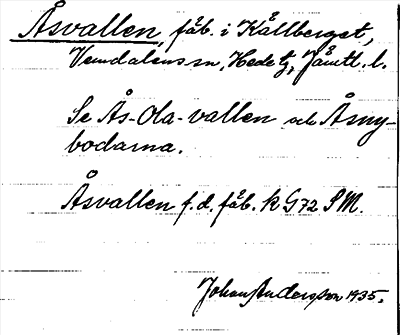 Åsvallen, fäb. i Kållberget,
Vemdalens sn, Hede tg, Jämtl. l.
Se Ås-Ola-vallen och Åsny-
bodarna.
Åsvallen f.d. fäb. k G72 SM.
Johan Andersson 1935.